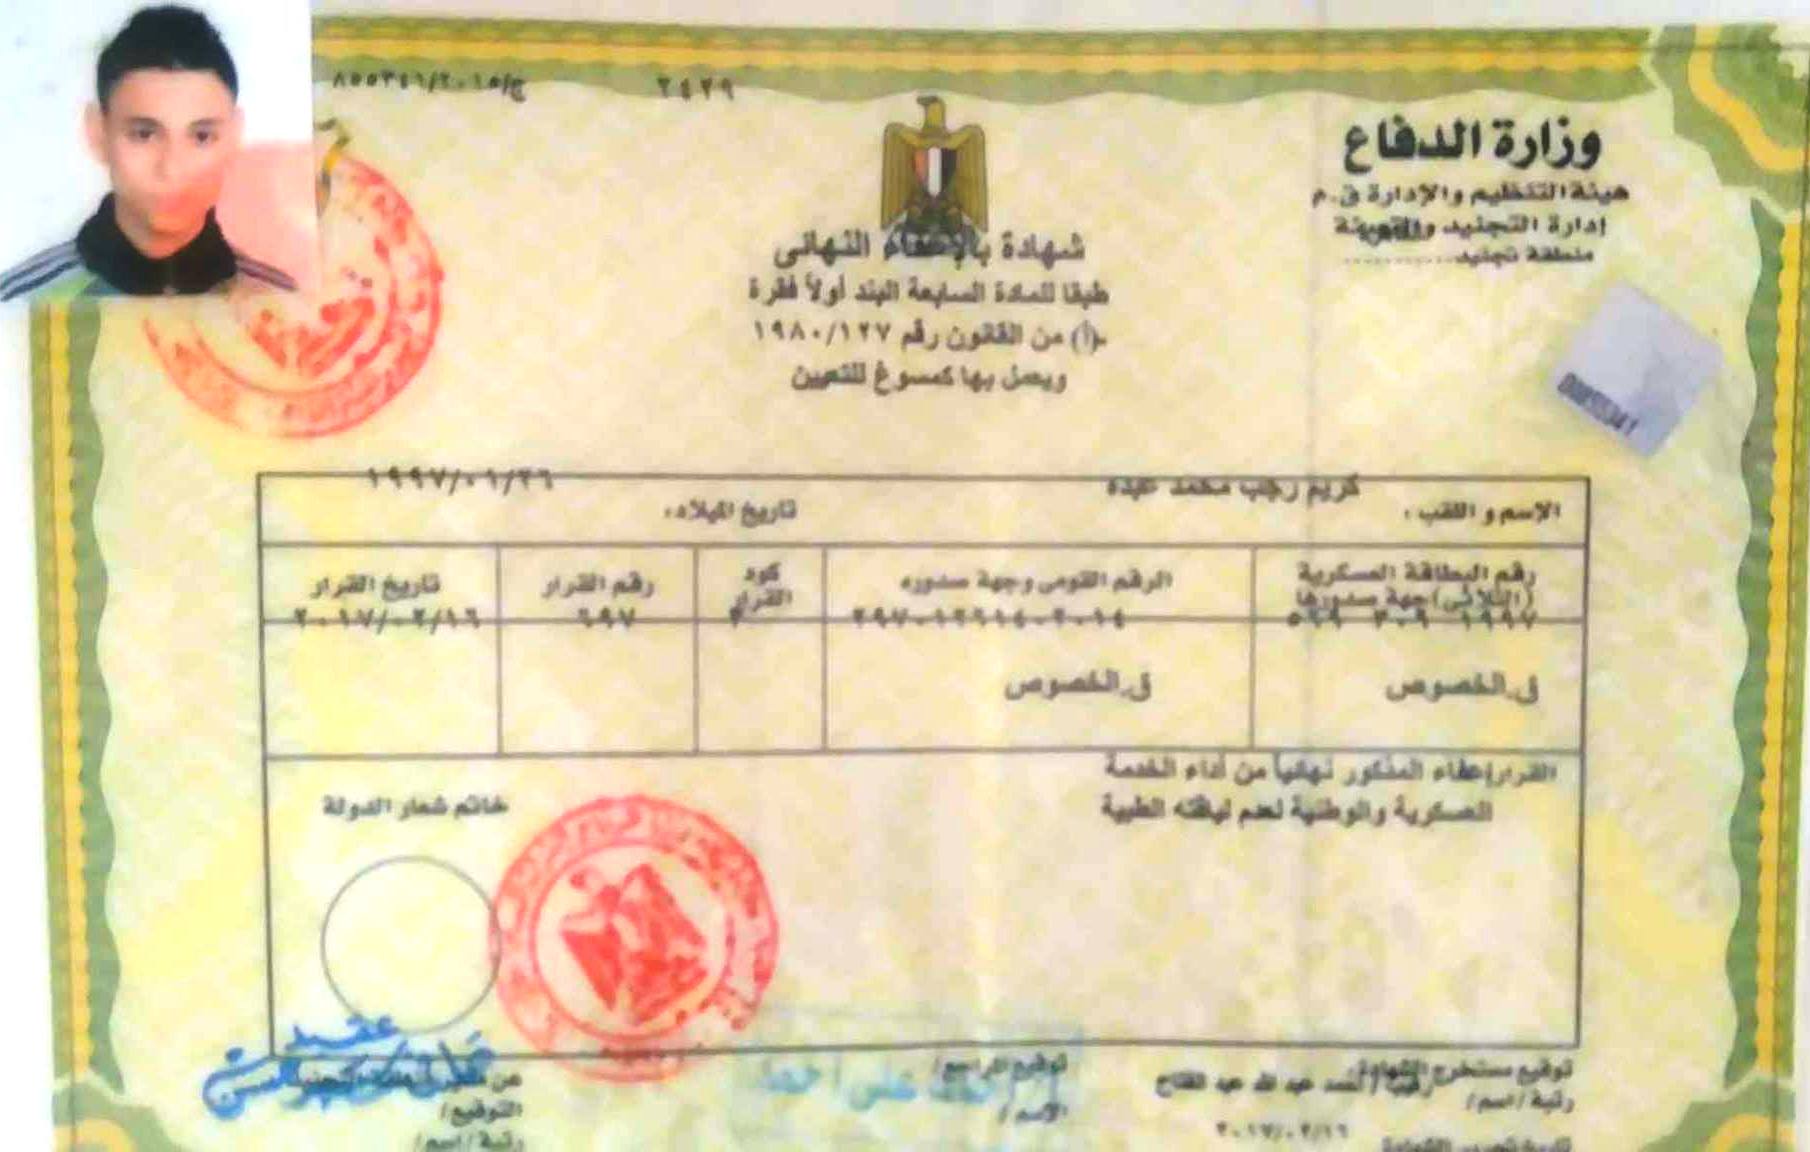 ٢٤٢٩
ج/٨٥٥٣٤١/٢٠١٥
وزارة الدفاع
هيئة التنظيم والإدارة ق.م
إدارة التجنيد والتعبئة
منطقة تجنيد
شهادة بالإعفاء النهائى
طبقا للمادة السابعة البند أولاً فقرة
(أ) من القانون رقم ١٩٨٠/١٢٧
ويعمل بها كمسوغ للتعيين
الإسم و اللقب : كريم رجب محمد عبده
تاريخ الميلاد: ١٩٩٧/٠١/٢٦
رقم البطاقة العسكرية (الثلاثى) جهة صدورها
الرقم القومى وجهة صدوره
كود القرار
رقم القرار
تاريخ القرار
٦٩٧
٢٠١٧/٠٢/١٦
ق.الخصوص
ق.الخصوص
القرار إعفاء المذكور نهائياً من أداء الخدمة
العسكرية والوطنية لعدم لياقته الطبية
خاتم شعار الدولة
توقيع مستخرج الشهادة
رتبة / اسم / رقيب / احمد عبد الله عبد الفتاح
٢٠١٧/٠٢/١٦
تاريخ تحرير الشهادة
توقيع المراجع /
الاسم /
على احمد
عقيد
التوقيع /
رتبة / اسم /